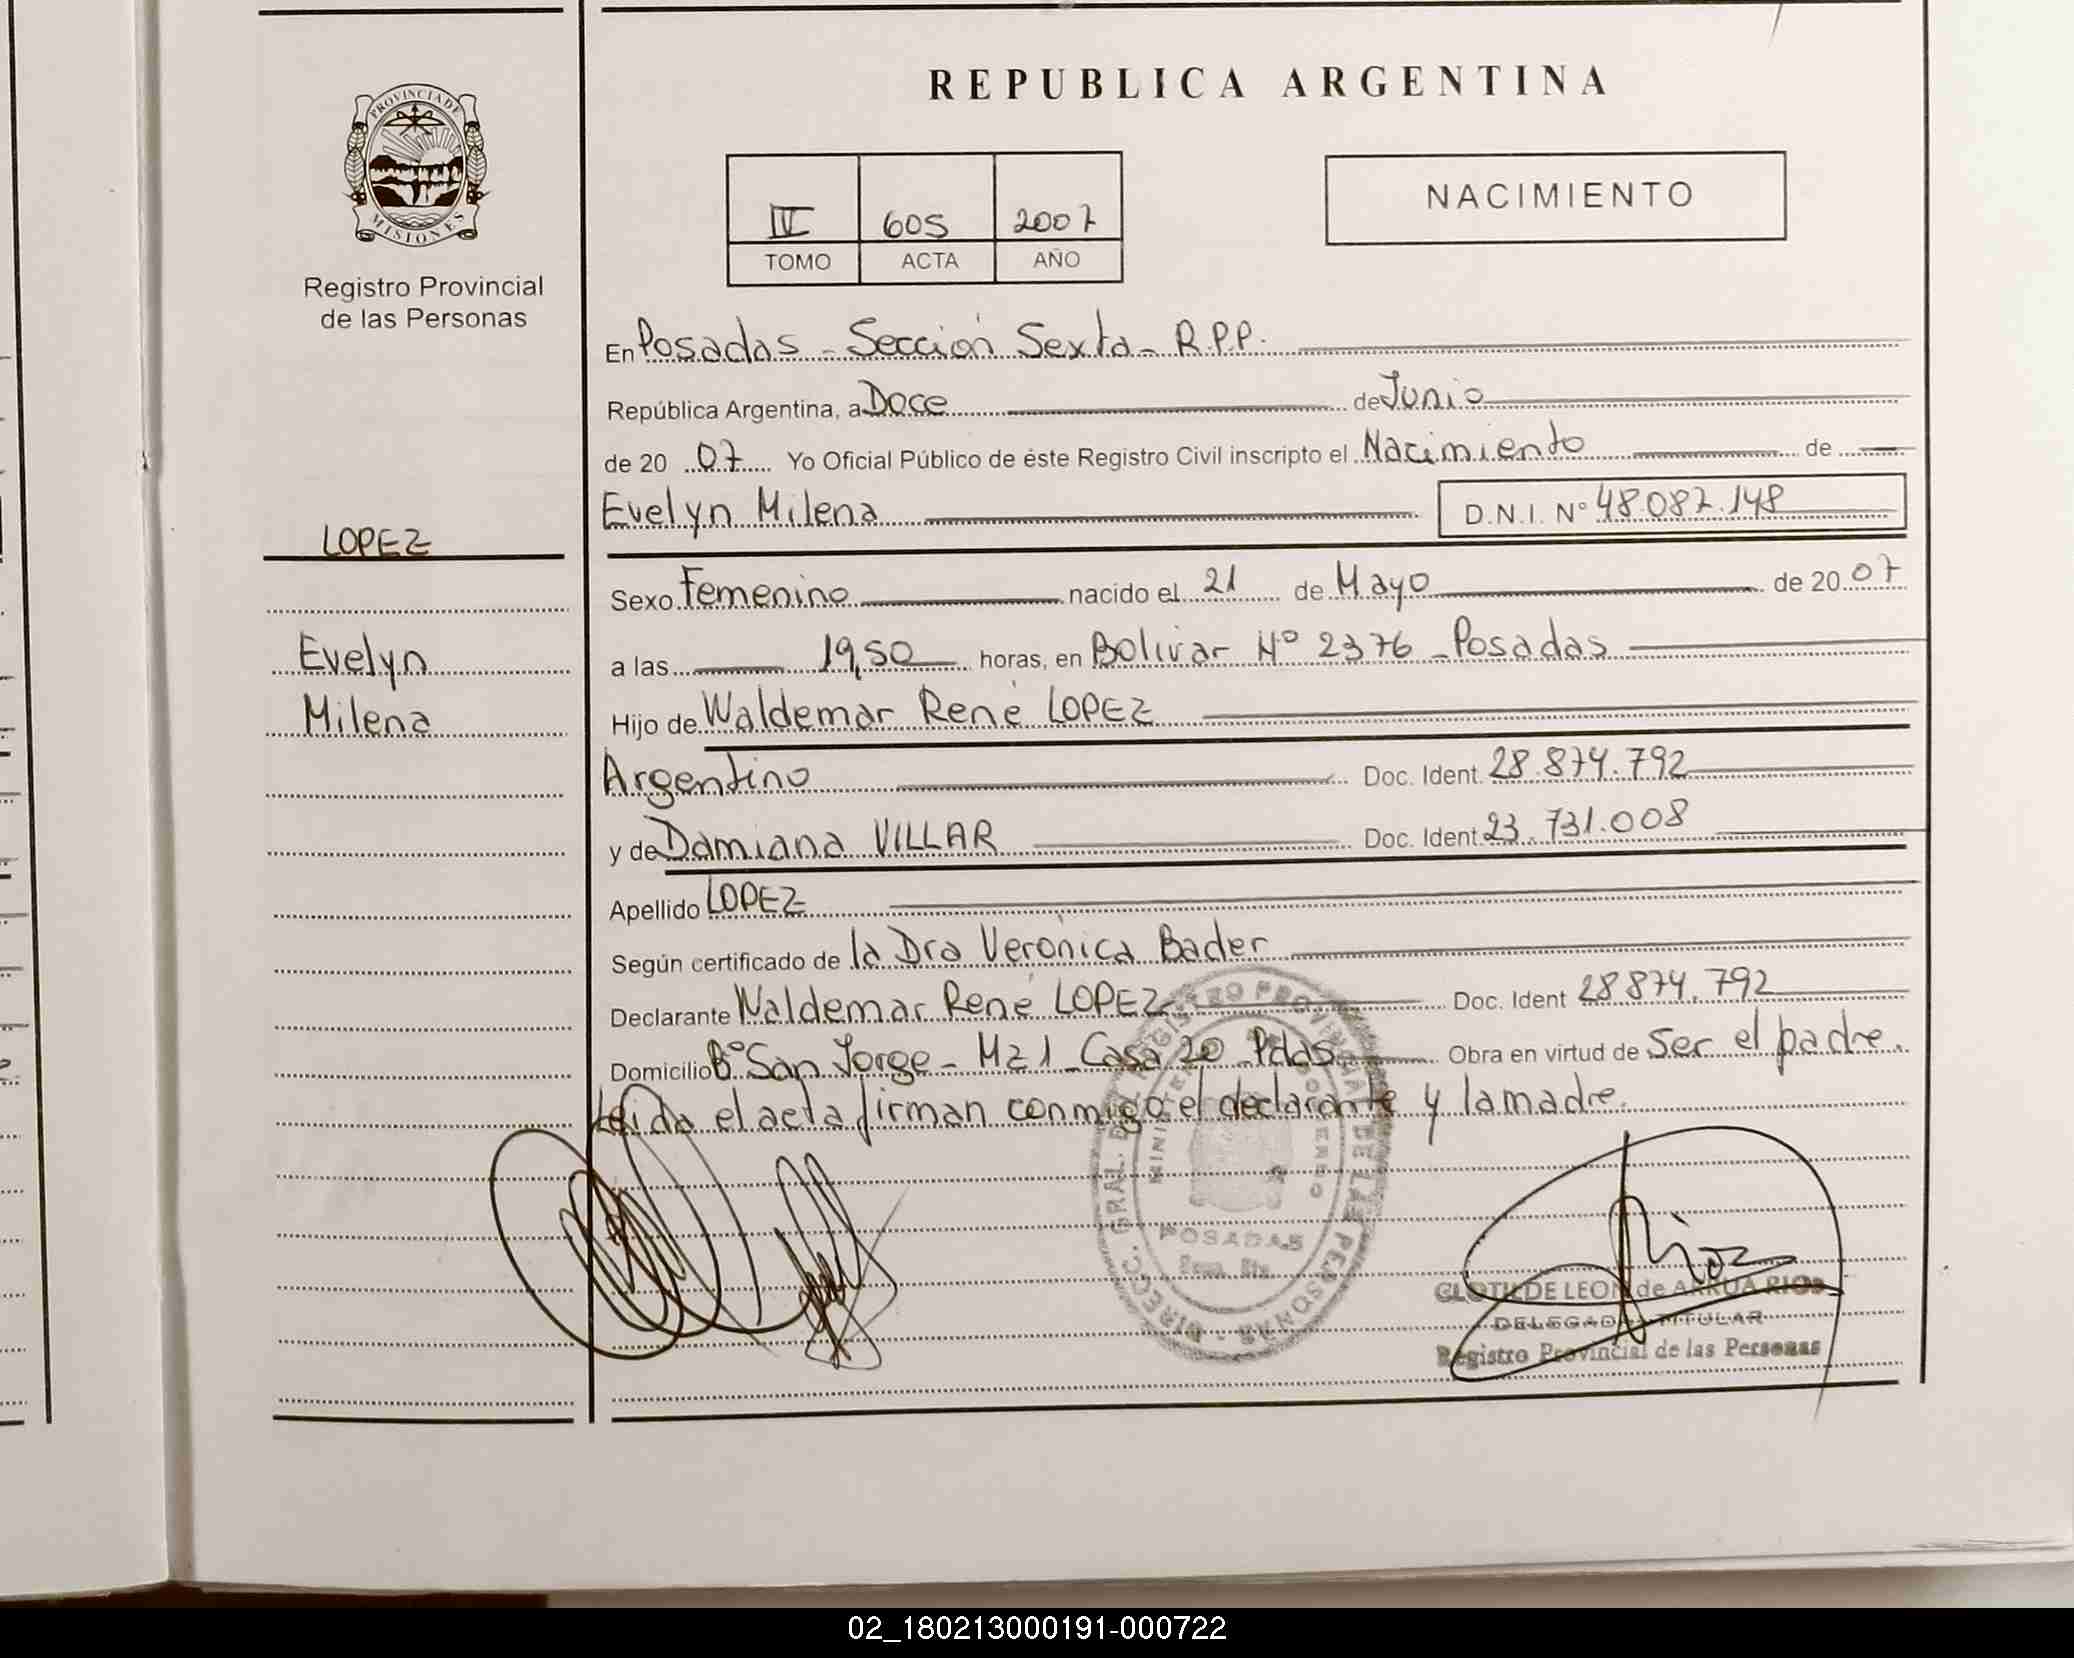 REPUBLICA ARGENTINA
PROVINCIA DE
MISIONES
Registro Provincial
de las Personas
IV 605 2007
TOMO ACTA AÑO
NACIMIENTO
En Posadas - Sección Sexta - R.P.P.
República Argentina, a Doce de Junio
de 20 07 Yo Oficial Público de éste Registro Civil inscripto el Nacimiento de
Evelyn Milena D.N.I. Nº 48.087.148
LOPEZ
Evelyn
Milena
Sexo Femenino nacido el 21 de Mayo de 20 07
a las 19,50 horas, en Bolivar Nº 2376 - Posadas
Hijo de Waldemar René LOPEZ
Argentino Doc. Ident. 28.874.792
y de Damiana VILLAR Doc. Ident. 23.731.008
Apellido LOPEZ
Según certificado de la Dra Verónica Bader
Declarante Waldemar René LOPEZ Doc. Ident 28874.792
Domicilio Bº San Jorge - Mz 1 - Casa 20 - Pdas. Obra en virtud de ser el padre.
Leida el acta firman conmigo el declarante y la madre.
DIRECC. GRAL. DEL REGISTRO PROVINCIAL DE LAS PERSONAS
MINISTERIO DE GOBIERNO
POSADAS
CLOTILDE LEON de ARRUA RIOS
DELEGADA TITULAR
Registro Provincial de las Personas
02_180213000191-000722